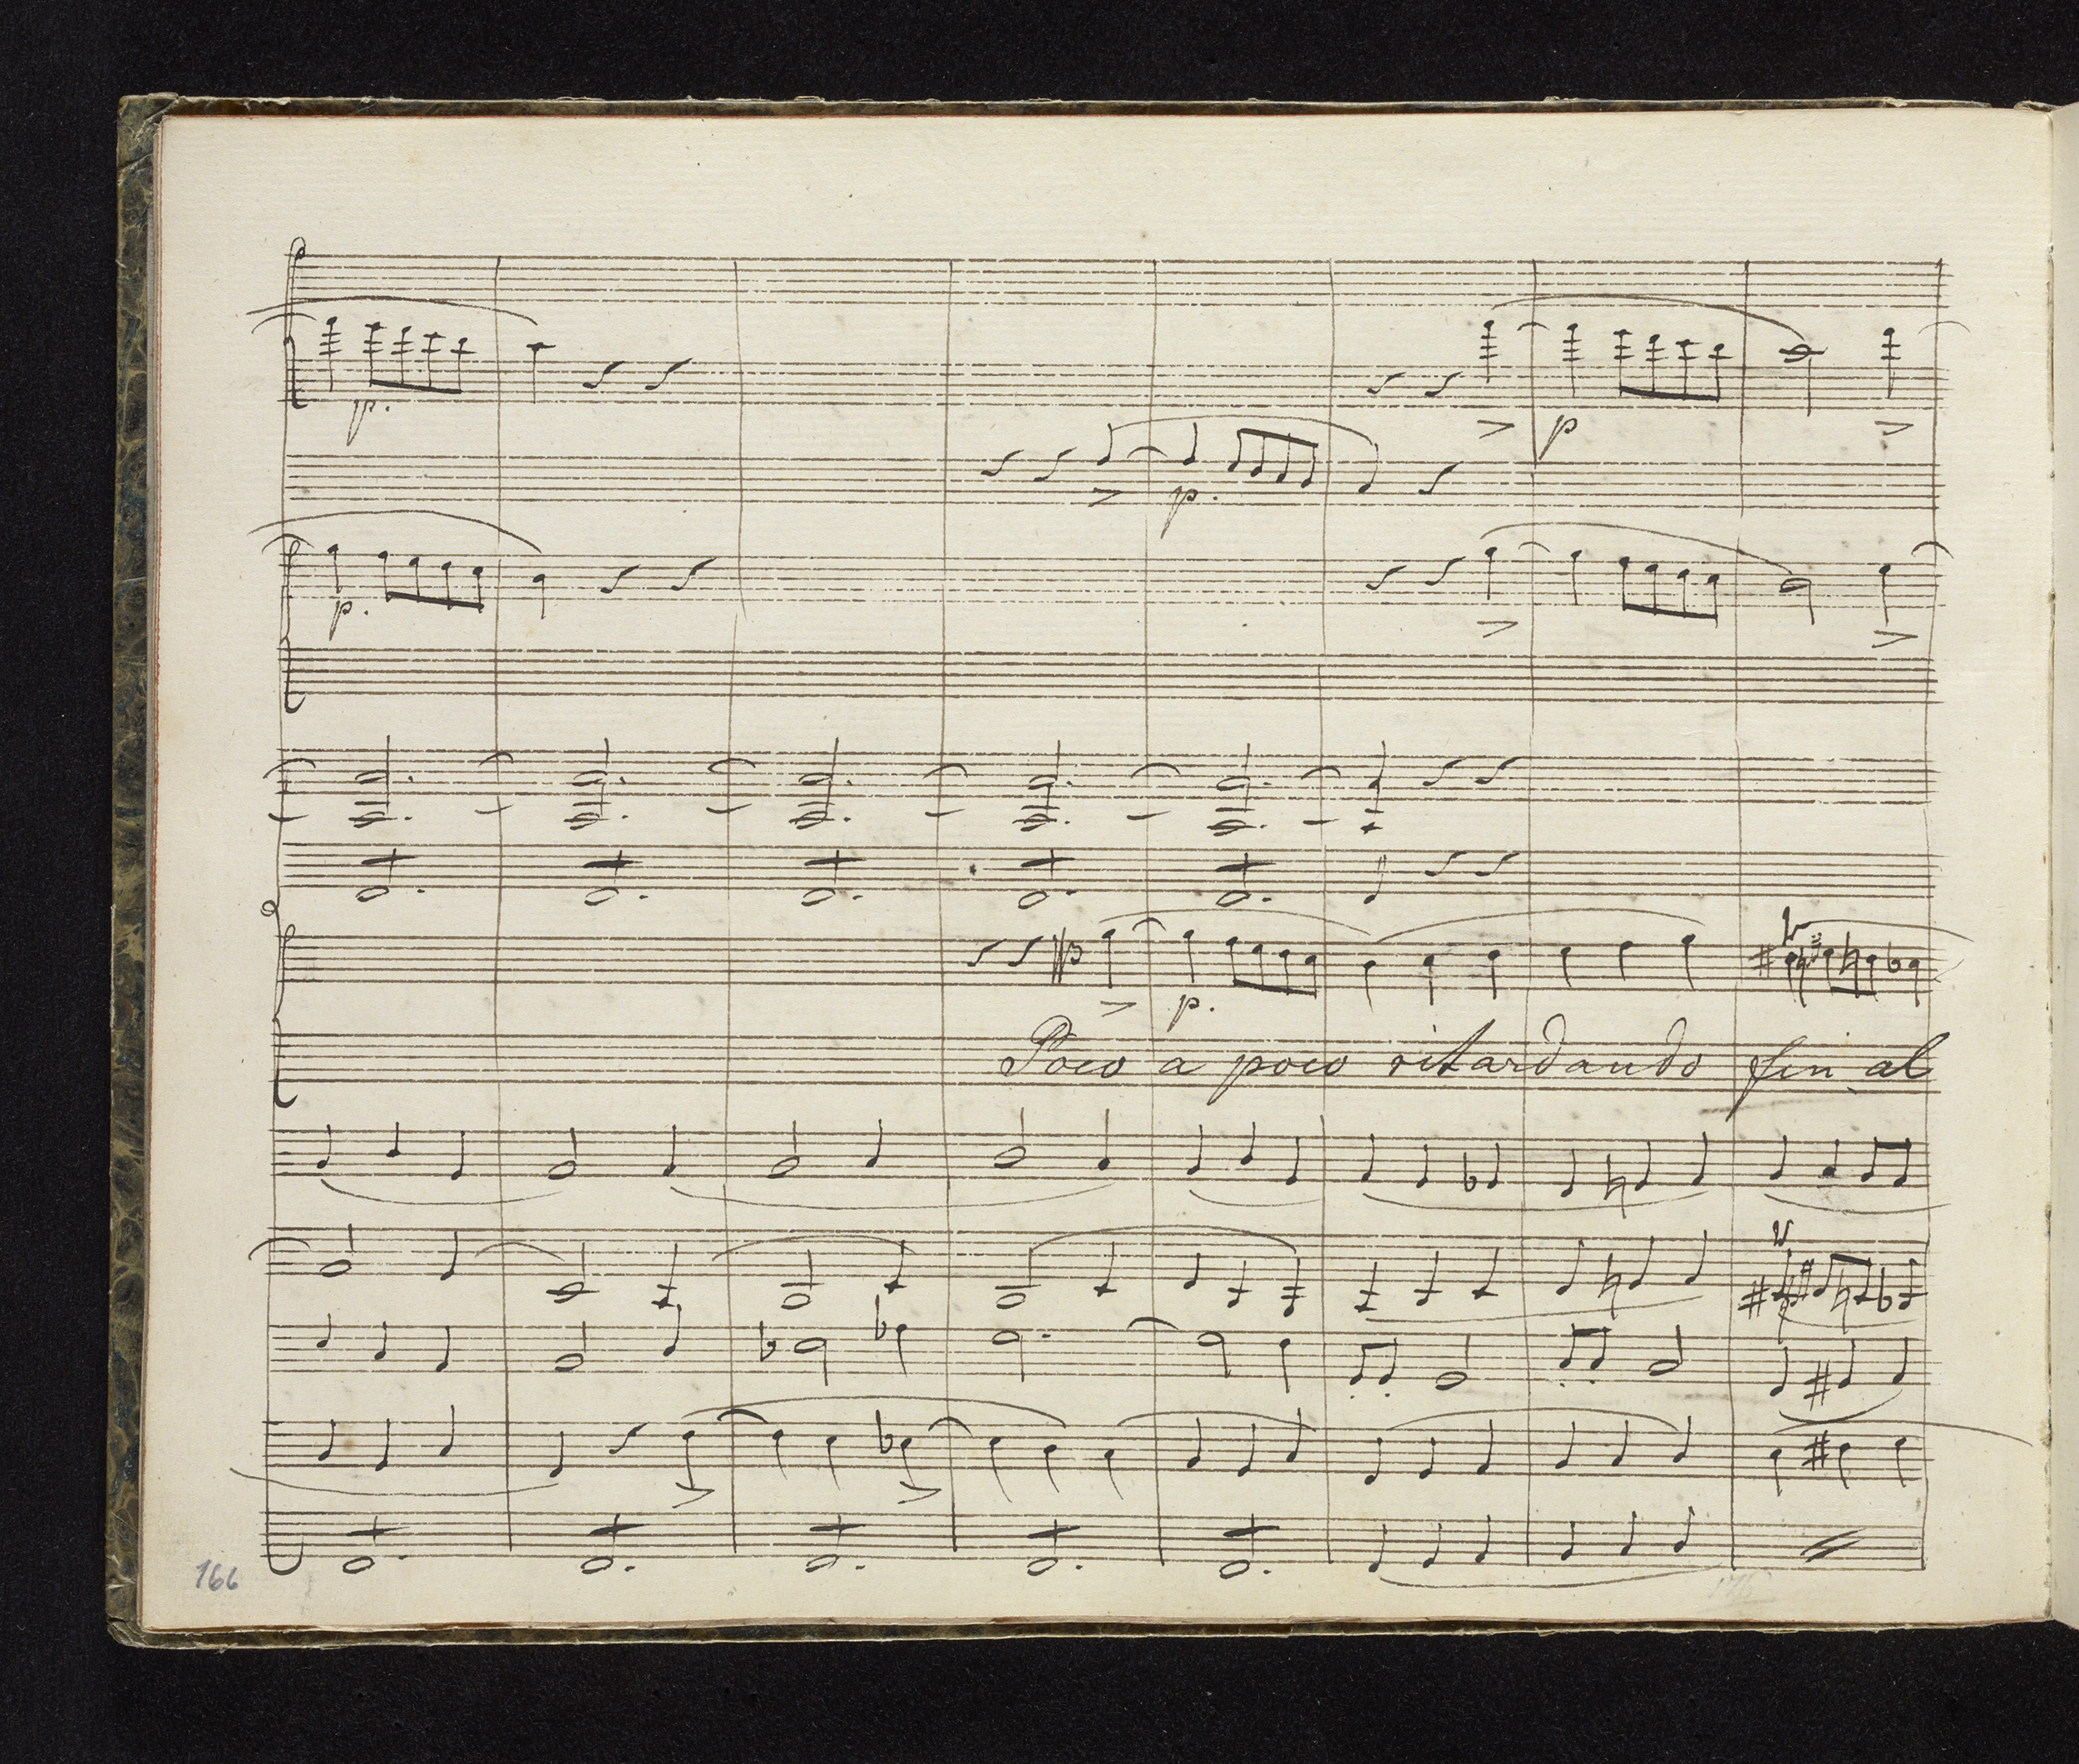 p.
> p >
> p.
p.
> >
> p.
Poco a poco ritardando fin al
> >
166